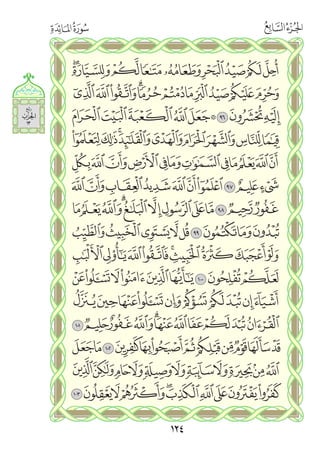 الجُزْءُ السَّابِعُ
سُورَةُ المَائِدَةِ
أُحِلَّ لَكُمْ صَيْدُ ٱلْبَحْرِ وَطَعَامُهُۥ مَتَٰعًا لَّكُمْ وَلِلسَّيَّارَةِۖ
وَحُرِّمَ عَلَيْكُمْ صَيْدُ ٱلْبَرِّ مَا دُمْتُمْ حُرُمًاۗ وَٱتَّقُوا۟ ٱللَّهَ ٱلَّذِىٓ
إِلَيْهِ تُحْشَرُونَ ٩٦ ۞ جَعَلَ ٱللَّهُ ٱلْكَعْبَةَ ٱلْبَيْتَ ٱلْحَرَامَ
قِيَٰمًا لِّلنَّاسِ وَٱلشَّهْرَ ٱلْحَرَامَ وَٱلْهَدْىَ وَٱلْقَلَٰٓئِدَۚ ذَٰلِكَ لِتَعْلَمُوٓا۟
أَنَّ ٱللَّهَ يَعْلَمُ مَا فِى ٱلسَّمَٰوَٰتِ وَمَا فِى ٱلْأَرْضِ وَأَنَّ ٱللَّهَ بِكُلِّ
شَىْءٍ عَلِيمٌ ٩٧ ٱعْلَمُوٓا۟ أَنَّ ٱللَّهَ شَدِيدُ ٱلْعِقَابِ وَأَنَّ ٱللَّهَ
غَفُورٌ رَّحِيمٌ ٩٨ مَّا عَلَى ٱلرَّسُولِ إِلَّا ٱلْبَلَٰغُۗ وَٱللَّهُ يَعْلَمُ مَا
تُبْدُونَ وَمَا تَكْتُمُونَ ٩٩ قُل لَّا يَسْتَوِى ٱلْخَبِيثُ وَٱلطَّيِّبُ
وَلَوْ أَعْجَبَكَ كَثْرَةُ ٱلْخَبِيثِۚ فَٱتَّقُوا۟ ٱللَّهَ يَٰٓأُو۟لِى ٱلْأَلْبَٰبِ
لَعَلَّكُمْ تُفْلِحُونَ ١٠٠ يَٰٓأَيُّهَا ٱلَّذِينَ ءَامَنُوا۟ لَا تَسْـَٔلُوا۟ عَنْ
أَشْيَآءَ إِن تُبْدَ لَكُمْ تَسُؤْكُمْ وَإِن تَسْـَٔلُوا۟ عَنْهَا حِينَ يُنَزَّلُ
ٱلْقُرْءَانُ تُبْدَ لَكُمْ عَفَا ٱللَّهُ عَنْهَاۗ وَٱللَّهُ غَفُورٌ حَلِيمٌ ١٠١
قَدْ سَأَلَهَا قَوْمٌ مِّن قَبْلِكُمْ ثُمَّ أَصْبَحُوا۟ بِهَا كَٰفِرِينَ ١٠٢ مَا جَعَلَ
ٱللَّهُ مِنۢ بَحِيرَةٍ وَلَا سَآئِبَةٍ وَلَا وَصِيلَةٍ وَلَا حَامٍۙ وَلَٰكِنَّ ٱلَّذِينَ
كَفَرُوا۟ يَفْتَرُونَ عَلَى ٱللَّهِ ٱلْكَذِبَۖ وَأَكْثَرُهُمْ لَا يَعْقِلُونَ ١٠٣
١٢٤